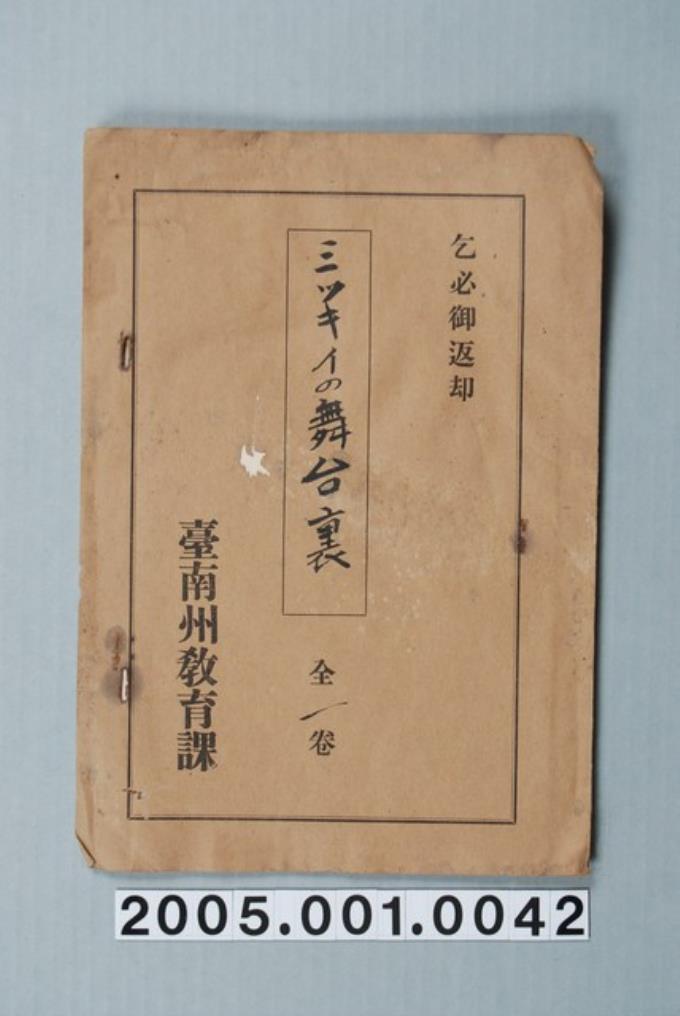 乞必御返却
ミツキイの舞台裏
全一卷
臺南州教育課
2005.001.0042